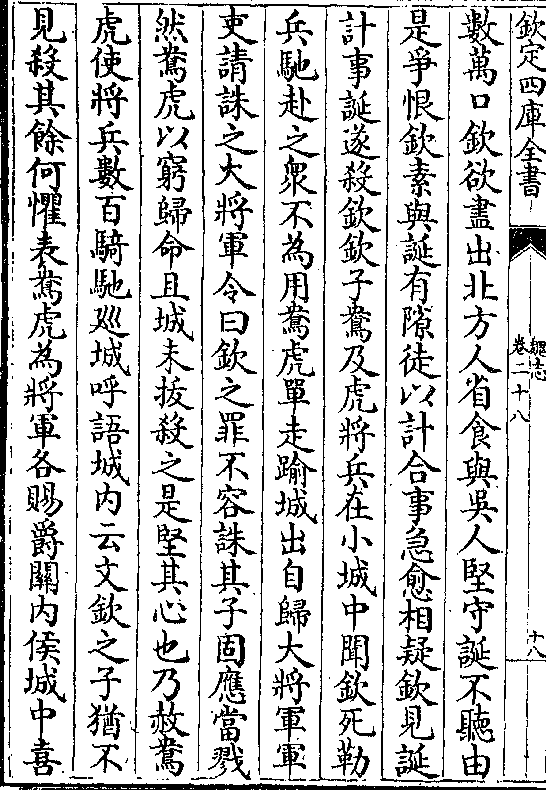 欽定四庫全書
魏志
卷二十八
十八
數萬口欽欲盡出北方人省食與吳人堅守誕不聽由
是爭恨欽素與誕有隙徒以計合事急愈相疑欽見誕
計事誕遂殺欽欽子鴦及虎將兵在小城中聞欽死勒
兵馳赴之衆不為用鴦虎單走踰城出自歸大將軍軍
吏請誅之大將軍令曰欽之罪不容誅其子固應當戮
然鴦虎以窮歸命且城未拔殺之是堅其心也乃赦鴦
虎使將兵數百騎馳廵城呼語城内云文欽之子猶不
見殺其餘何懼表鴦虎為將軍各賜爵關内侯城中喜